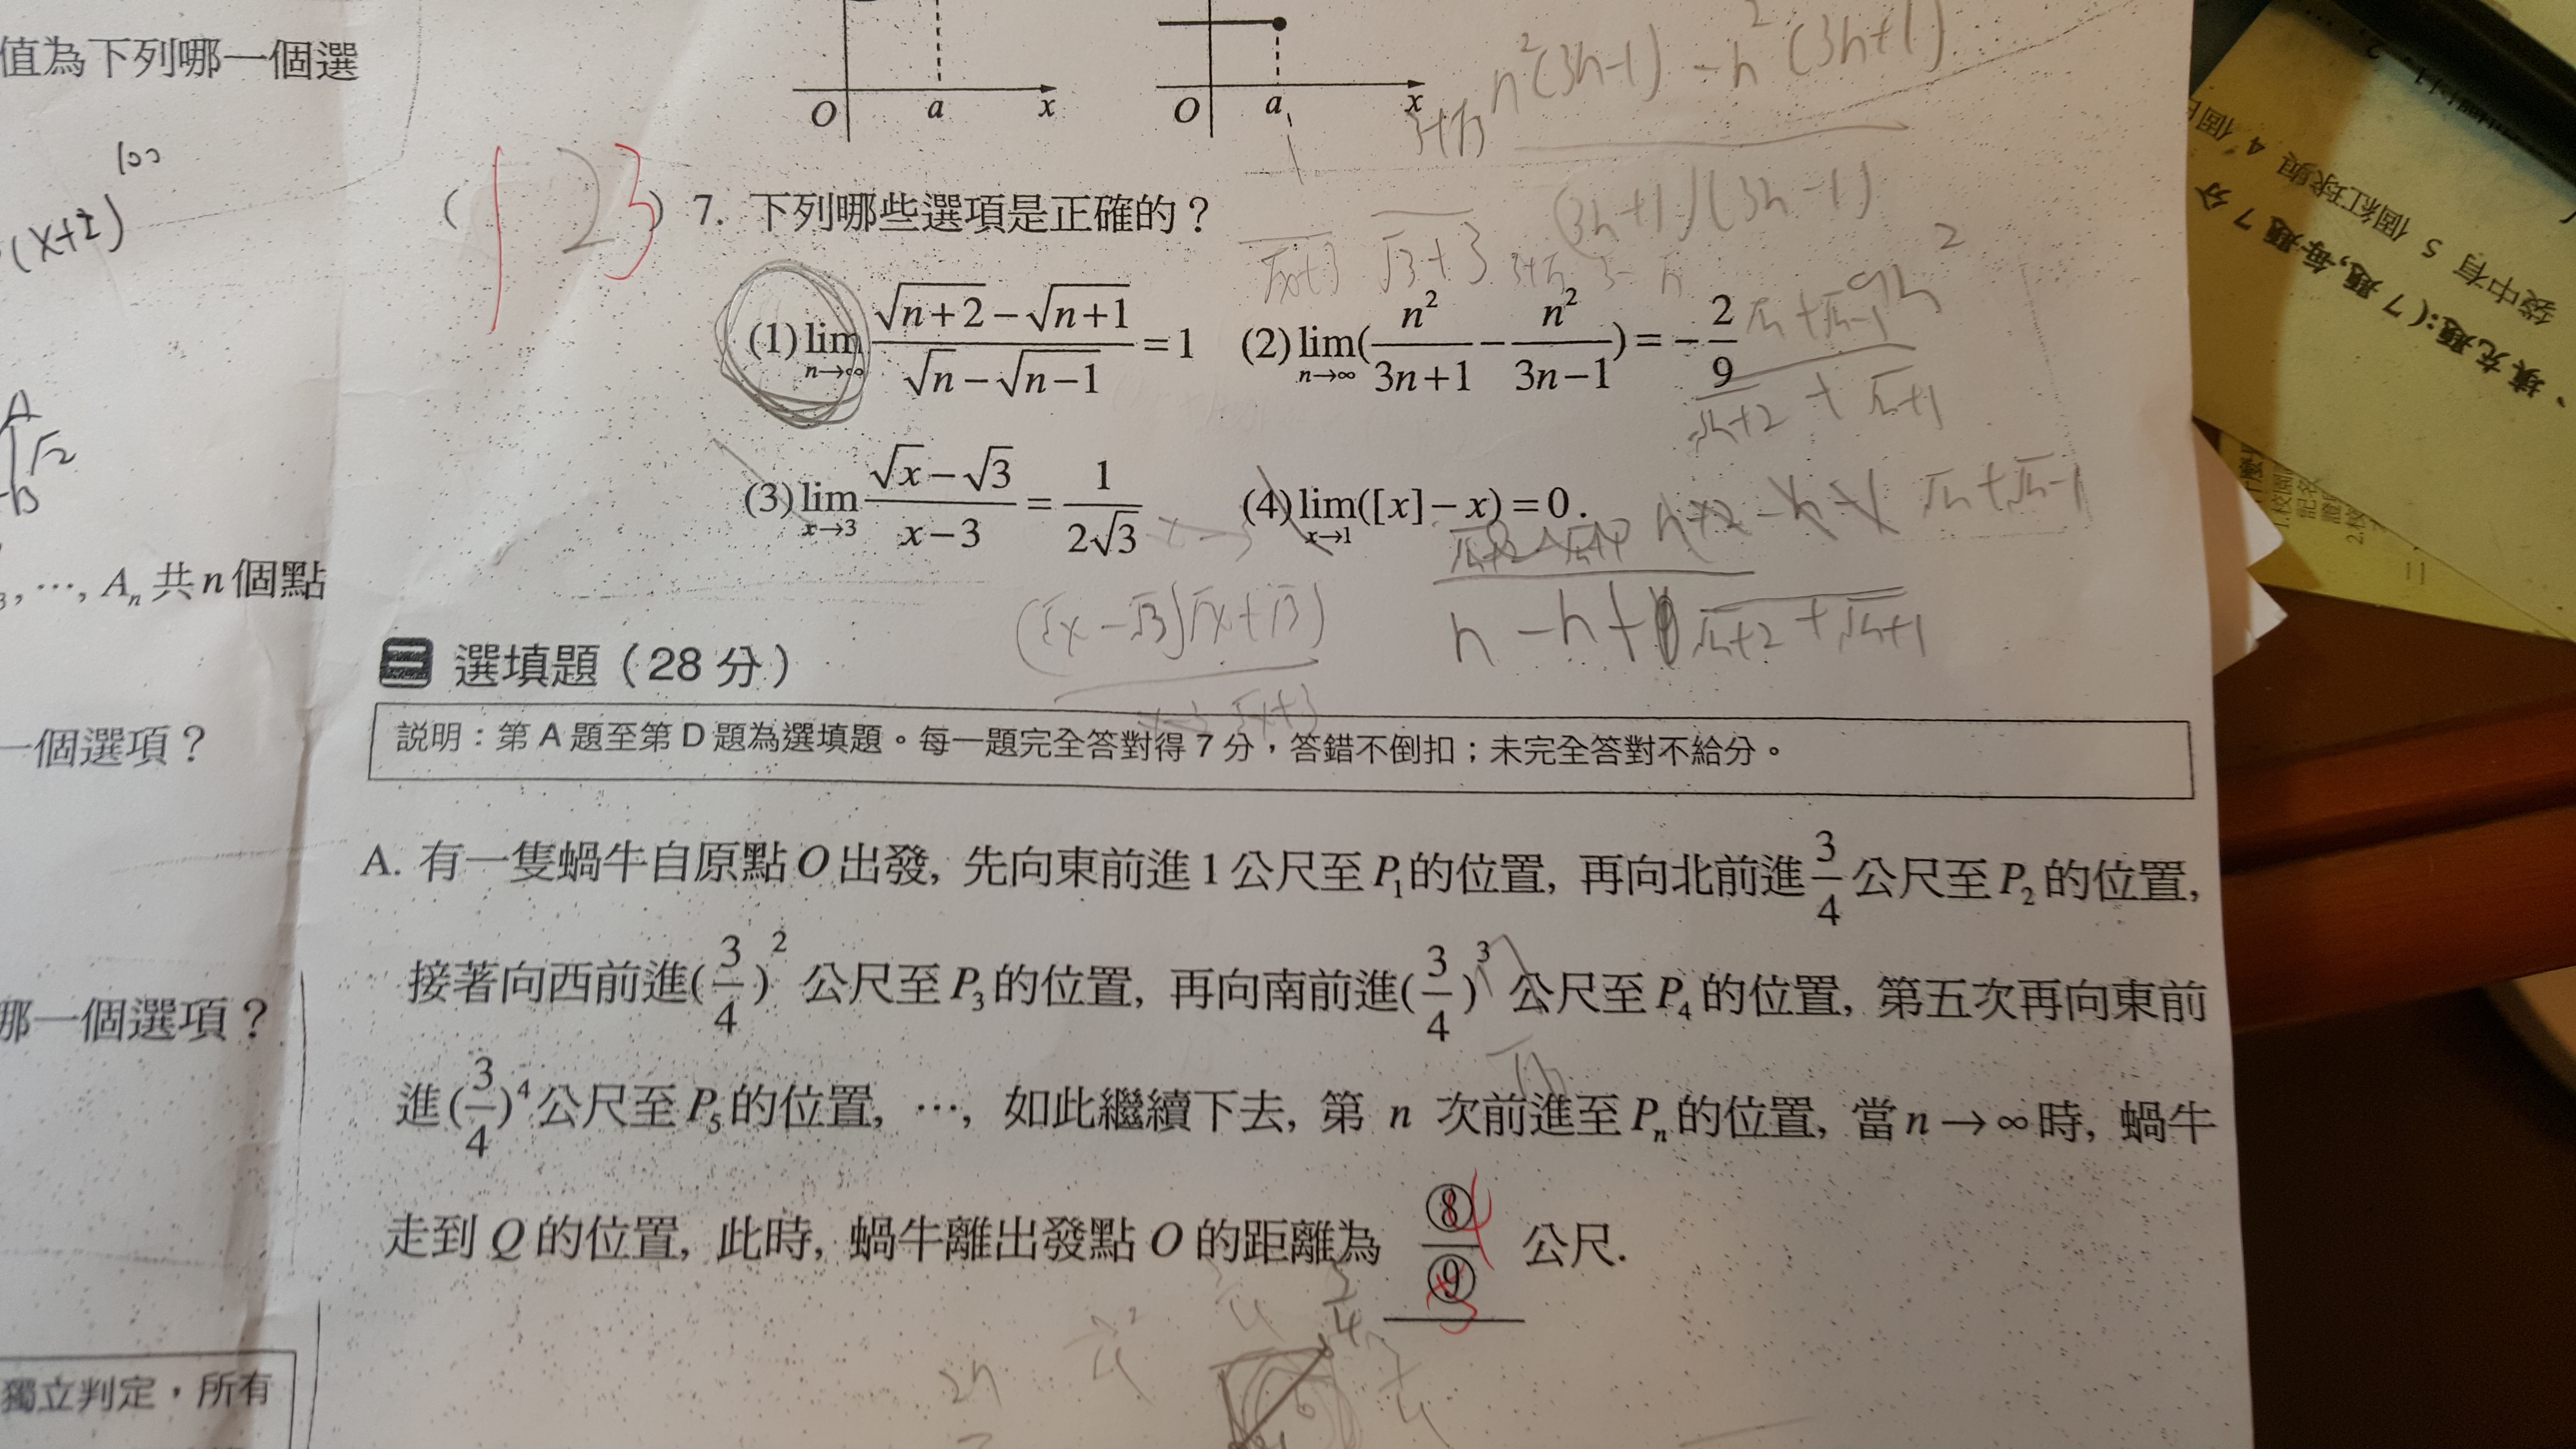 值為下列哪一個選
(x+2)^100
A
√2
3, …, Aₙ 共 n 個點
一個選項？
哪一個選項？
獨立判定，所有
O a x
O a x
n²(3n-1) - n²(3n+1)
(3n+1)(3n-1)
( 123 ) 7. 下列哪些選項是正確的？
(1) lim_{n→∞} (√(n+2) − √(n+1)) / (√n − √(n−1)) = 1 (2) lim_{n→∞} (n²/(3n+1) − n²/(3n−1)) = −2/9
(3) lim_{x→3} (√x − √3)/(x−3) = 1/(2√3) (4) lim_{x→1} ([x]−x) = 0.
(√x-√3)(√x+√3)
√n+2 + √n+1
三 選填題（28 分）
説明：第 A 題至第 D 題為選填題。每一題完全答對得 7 分，答錯不倒扣；未完全答對不給分。
A. 有一隻蝸牛自原點 O 出發, 先向東前進 1 公尺至 P₁ 的位置, 再向北前進 3/4 公尺至 P₂ 的位置,
接著向西前進 (3/4)² 公尺至 P₃ 的位置, 再向南前進 (3/4)³ 公尺至 P₄ 的位置, 第五次再向東前
進 (3/4)⁴ 公尺至 P₅ 的位置, …, 如此繼續下去, 第 n 次前進至 Pₙ 的位置, 當 n→∞ 時, 蝸牛
走到 Q 的位置, 此時, 蝸牛離出發點 O 的距離為 ⑧/⑨ 公尺.
3/4
填充題:(7 題,每題 7 分
袋中有 5 個紅球與 4 個